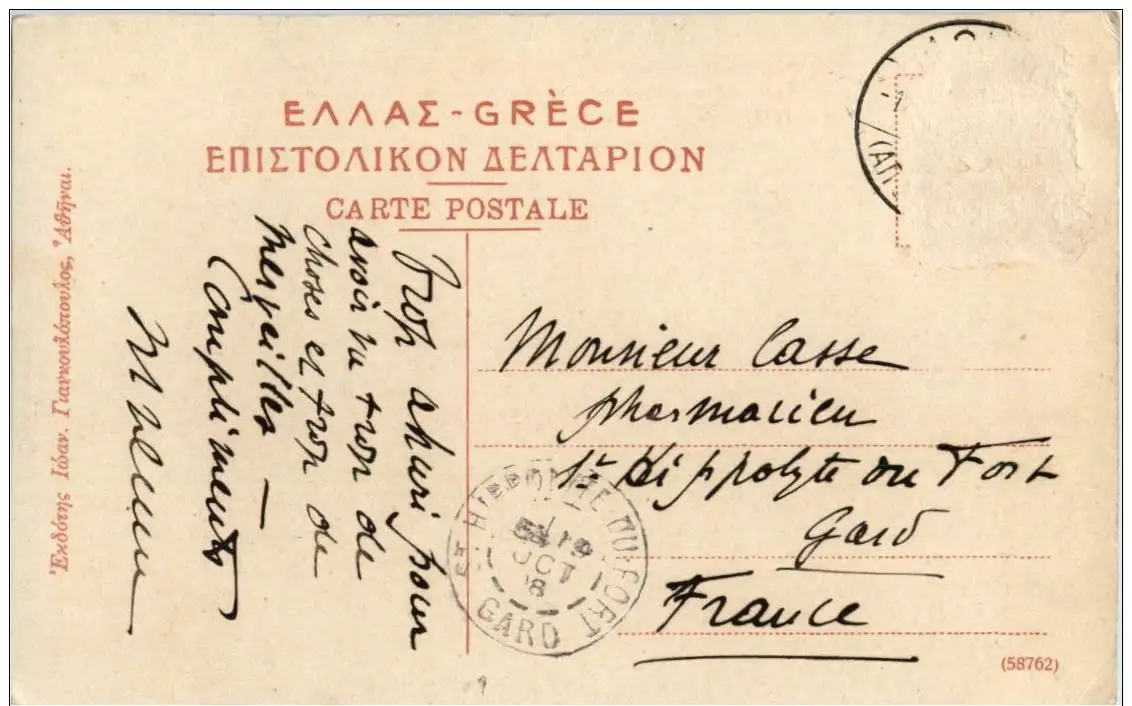 ΕΛΛΑΣ - GRÈCE
ΕΠΙΣΤΟΛΙΚΟΝ ΔΕΛΤΑΡΙΟΝ
CARTE POSTALE
Ἐκδότης Ἰωάν. Γιαννουλόπουλος, Ἀθῆναι.
Trop ahuri pour
avoir vu trop de
choses et trop de
merveilles —
Compliments
Monsieur Casse
pharmacien
St Hippolyte du Fort
Gard
France
ST HIPPOLYTE-DU-FORT
OCT
8
GARD
(58762)